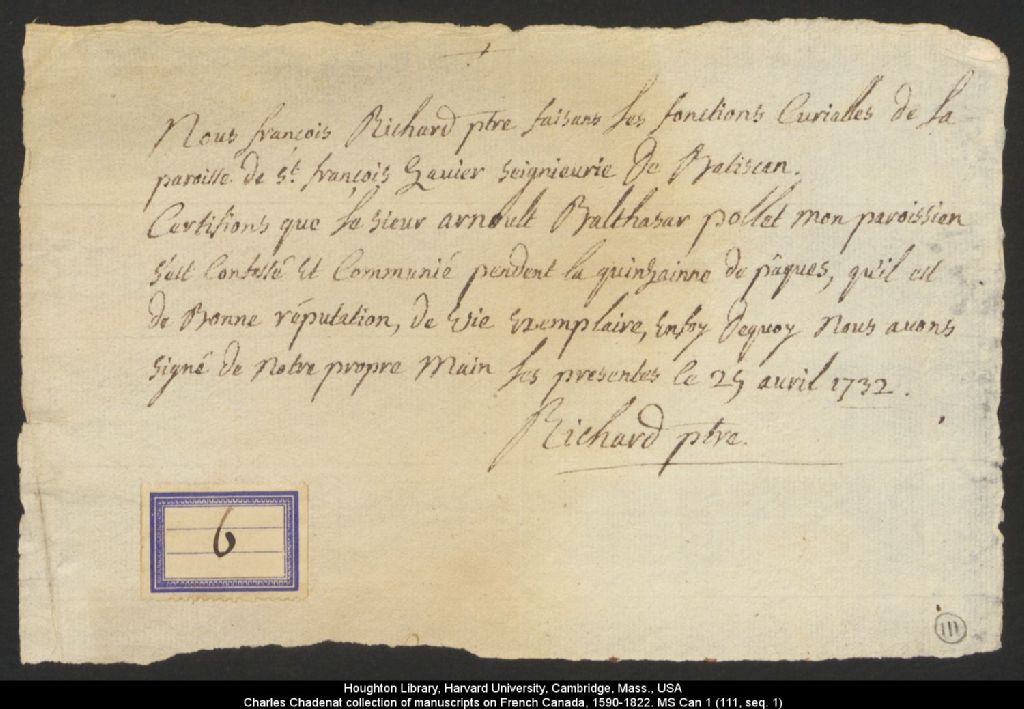 +
Nous françois Richard ptre faisans les fonctions Curialles de la
paroisse de St. françois Xavier seignieurie De Batiscan.
Certifions que le sieur arnoult Balthasar pollet mon paroissien
s'est Confessé et Communié pendent la quinzainne de pâques, qu'il est
de Bonne réputation, de vie exemplaire, enfoy Dequoy Nous avons
signé de Notre propre Main les presentes le 25 avril 1732.
Richard ptre.
6
111
Houghton Library, Harvard University, Cambridge, Mass., USA
Charles Chadenat collection of manuscripts on French Canada, 1590-1822. MS Can 1 (111, seq. 1)